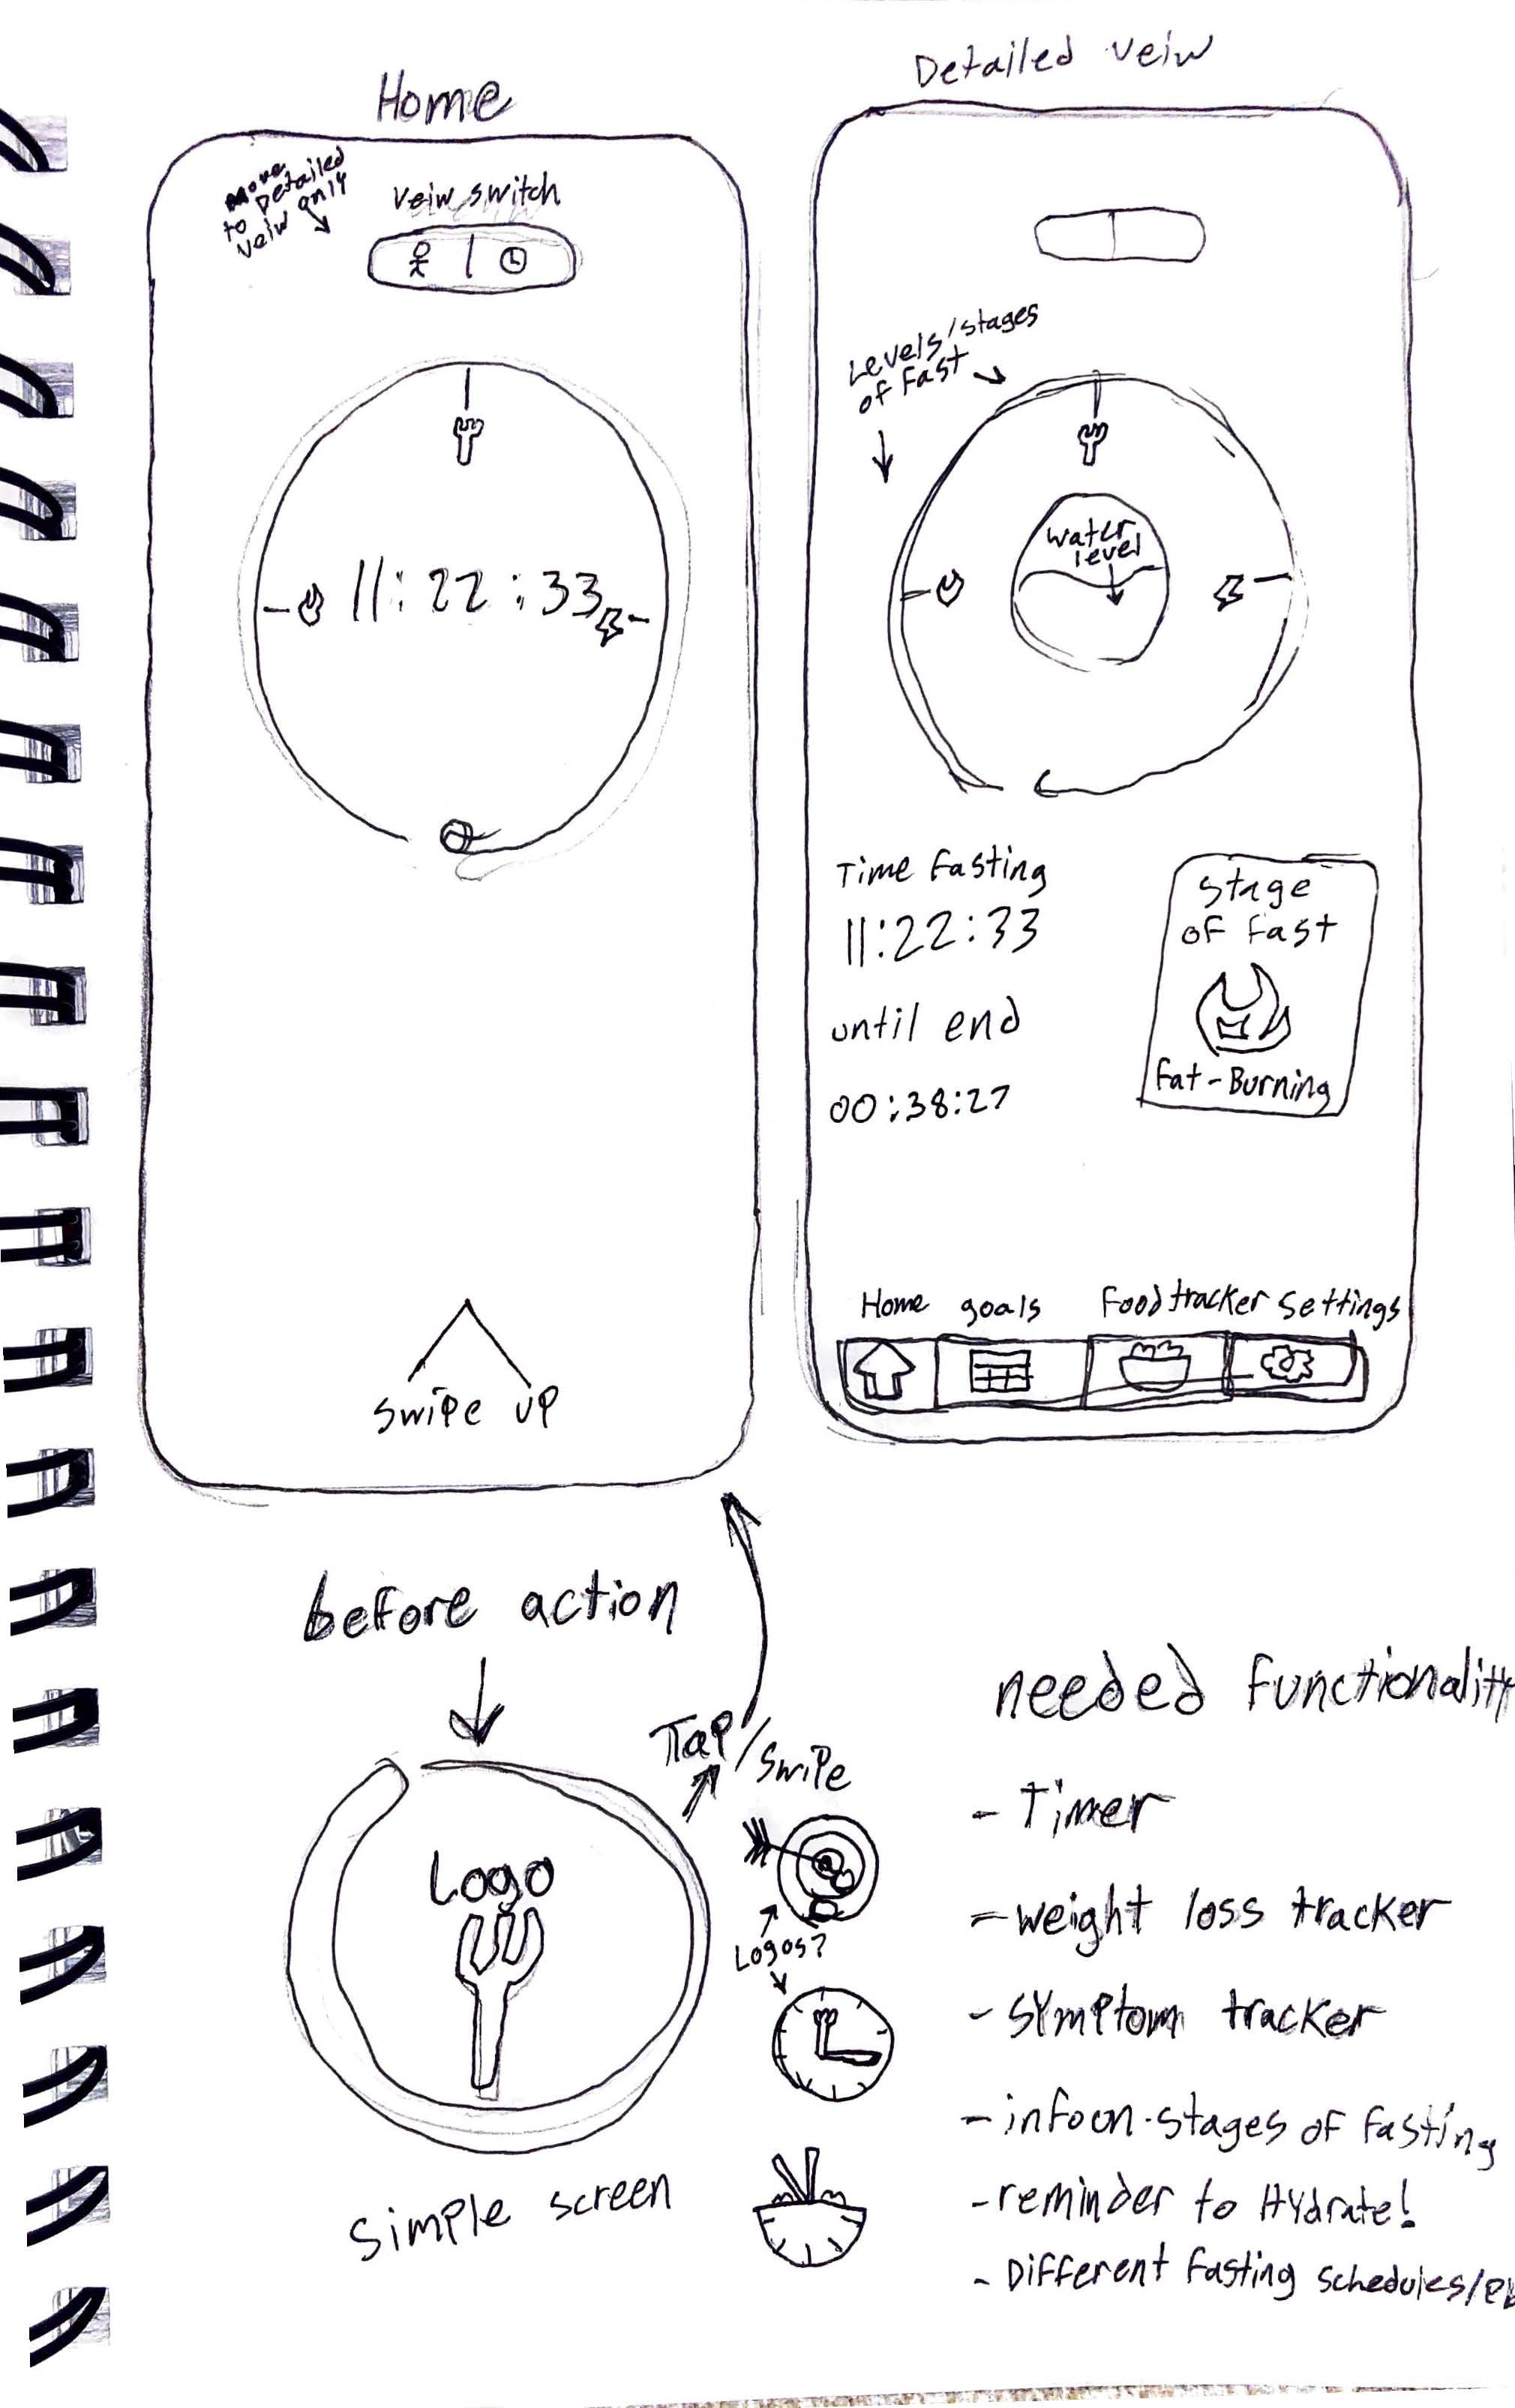 Home
Move
to Detailed
veiw only
veiw switch
11:22:33
swipe up
Detailed veiw
Levels/stages
of Fast
water
level
Time Fasting
11:22:33
until end
00:38:27
stage
of Fast
Fat-Burning
Home goals Food tracker settings
before action
Tap/swipe
Logo
Logos?
simple screen
needed functionalit
- Timer
- weight loss tracker
- symptom tracker
- info on stages of fasting
- reminder to Hydrate!
- Different fasting schedules/